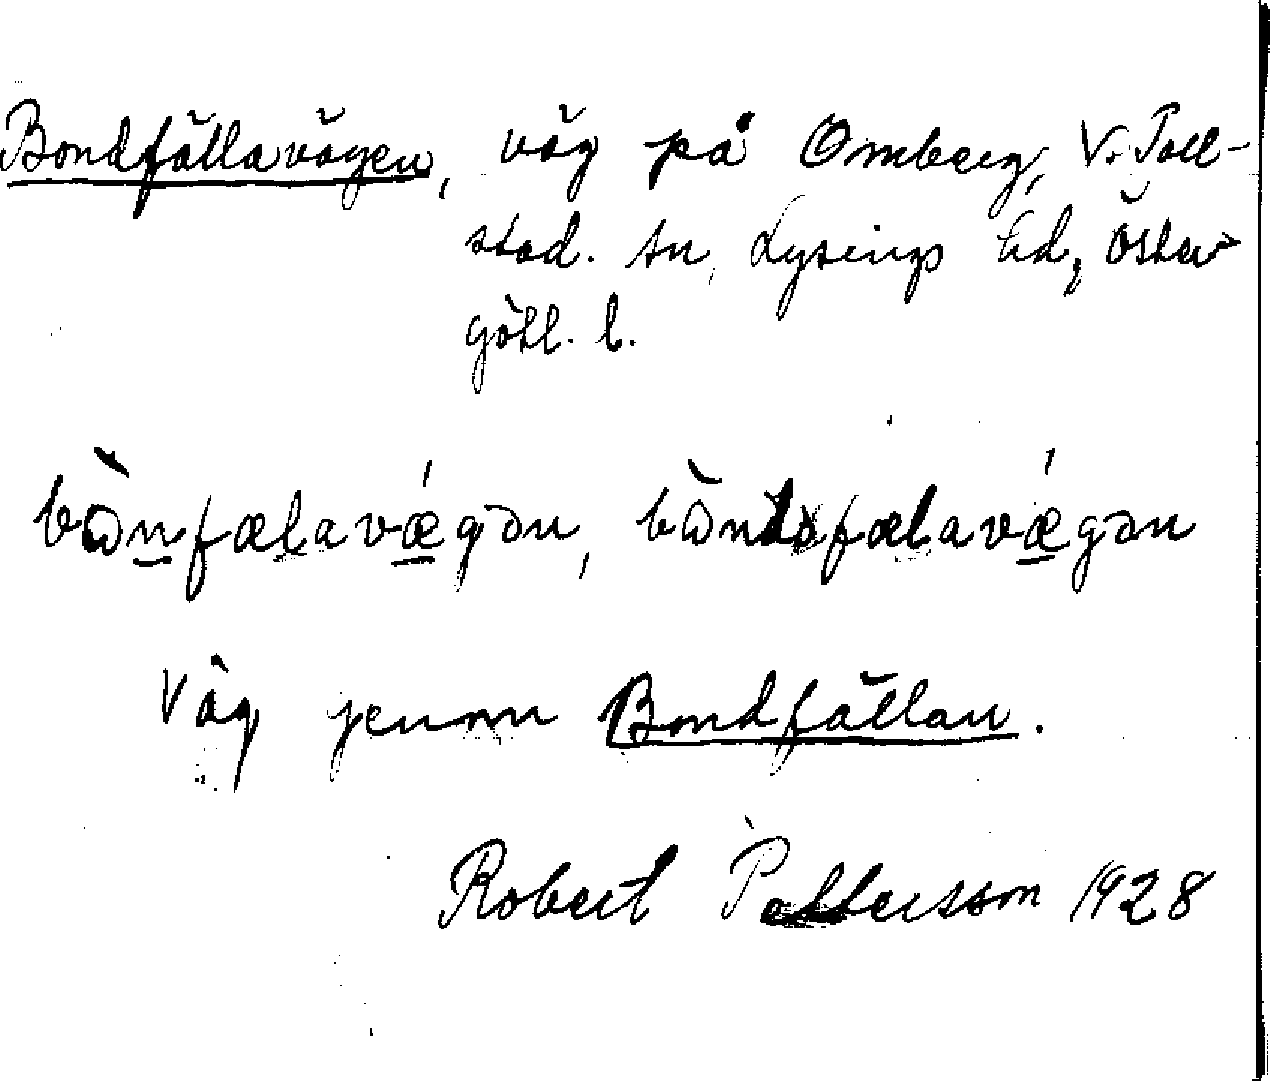 Bondfällavägen, väg på Omberg, V. Toll-
stad. sn, Lysings hd, Öster-
götl. l.
bɷ̀nfælavǽgən, bɷ̀nfælavǽgən
Väg genom Bondfällan.
Robert Pettersson 1928